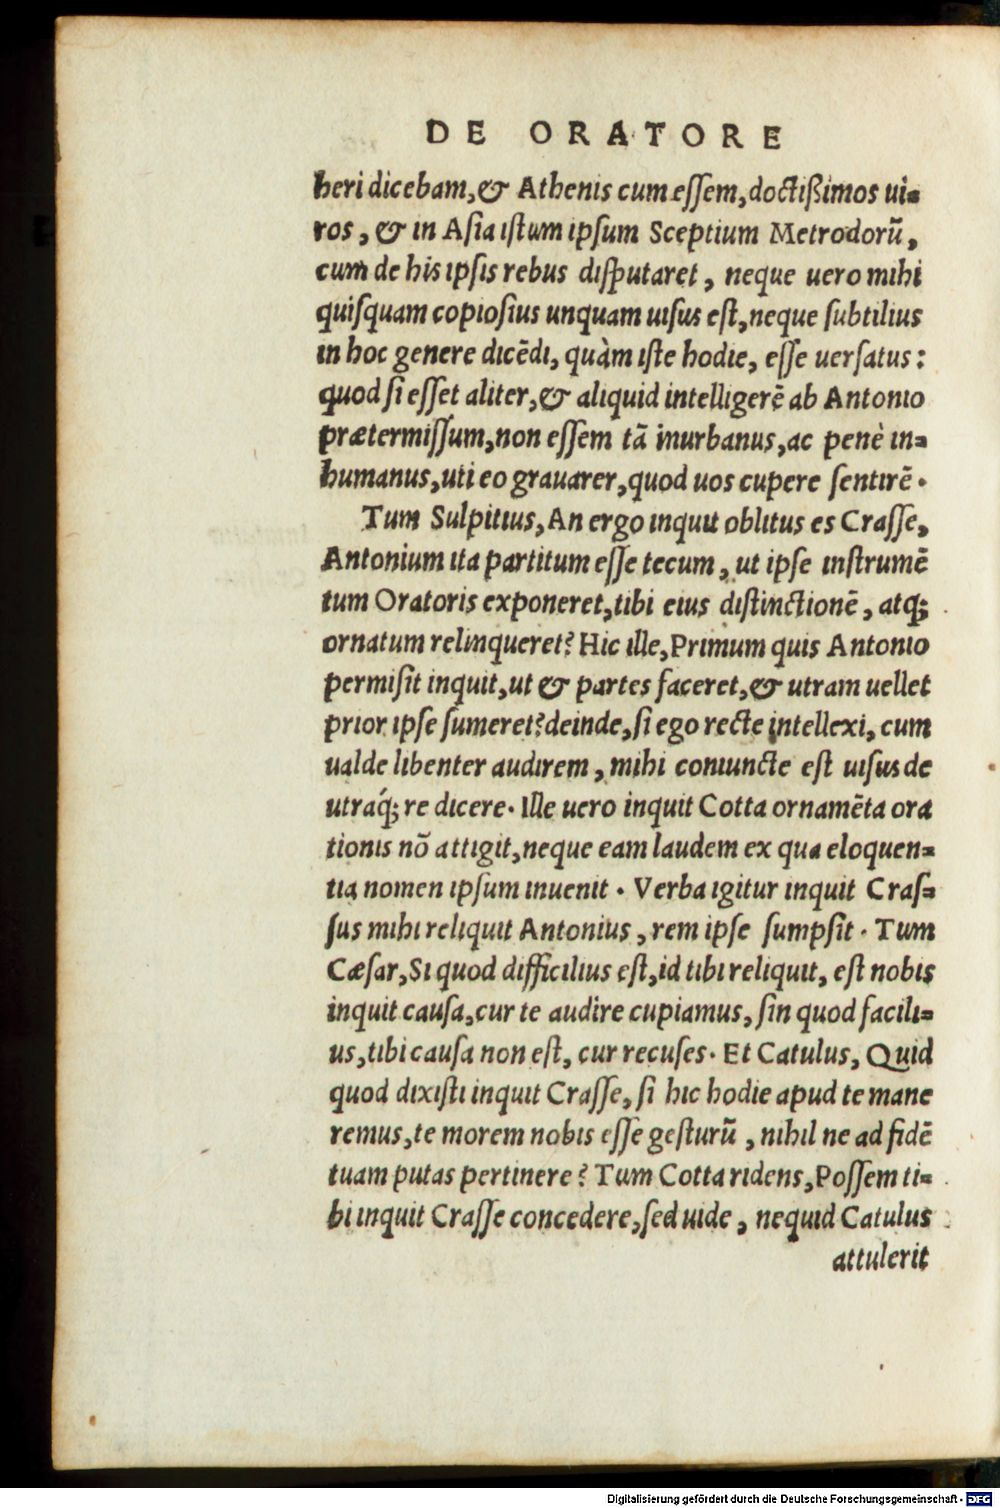 DE ORATORE
heri dicebam,& Athenis cum eſſem,doctißimos ui=
ros, & in Aſia iſtum ipſum Sceptium Metrodorū,
cum de his ipſis rebus diſputaret, neque uero mihi
quiſquam copioſius unquam uiſus eſt,neque ſubtilius
in hoc genere dicēdi, quàm iſte hodie, eſſe uerſatus:
quod ſi eſſet aliter,& aliquid intelligerē ab Antonio
prætermiſſum,non eſſem tā inurbanus,ac penè in=
humanus,uti eo grauarer,quod uos cupere ſentirē.
Tum Sulpitius,An ergo inquit oblitus es Craſſe,
Antonium ita partitum eſſe tecum, ut ipſe inſtrumē
tum Oratoris exponeret,tibi eius diſtinctionē, atq;
ornatum relinqueret? Hic ille,Primum quis Antonio
permiſit inquit,ut & partes faceret,& utram uellet
prior ipſe ſumeret?deinde,ſi ego recte intellexi, cum
ualde libenter audirem, mihi coniuncte eſt uiſus de
utráq; re dicere. Ille uero inquit Cotta ornamēta ora
tionis nō attigit,neque eam laudem ex qua eloquen=
tia nomen ipſum inuenit. Verba igitur inquit Craſ=
ſus mihi reliquit Antonius, rem ipſe ſumpſit. Tum
Cæſar,Si quod difficilius eſt,id tibi reliquit, eſt nobis
inquit cauſa,cur te audire cupiamus, ſin quod facili=
us,tibi cauſa non eſt, cur recuſes. Et Catulus, Quid
quod dixiſti inquit Craſſe, ſi hic hodie apud te mane
remus,te morem nobis eſſe geſturū, nihil ne ad fidē
tuam putas pertinere? Tum Cotta ridens,Poſſem ti=
bi inquit Craſſe concedere,ſed uide, nequid Catulus
attulerit
Digitalisierung gefördert durch die Deutsche Forschungsgemeinschaft - DFG